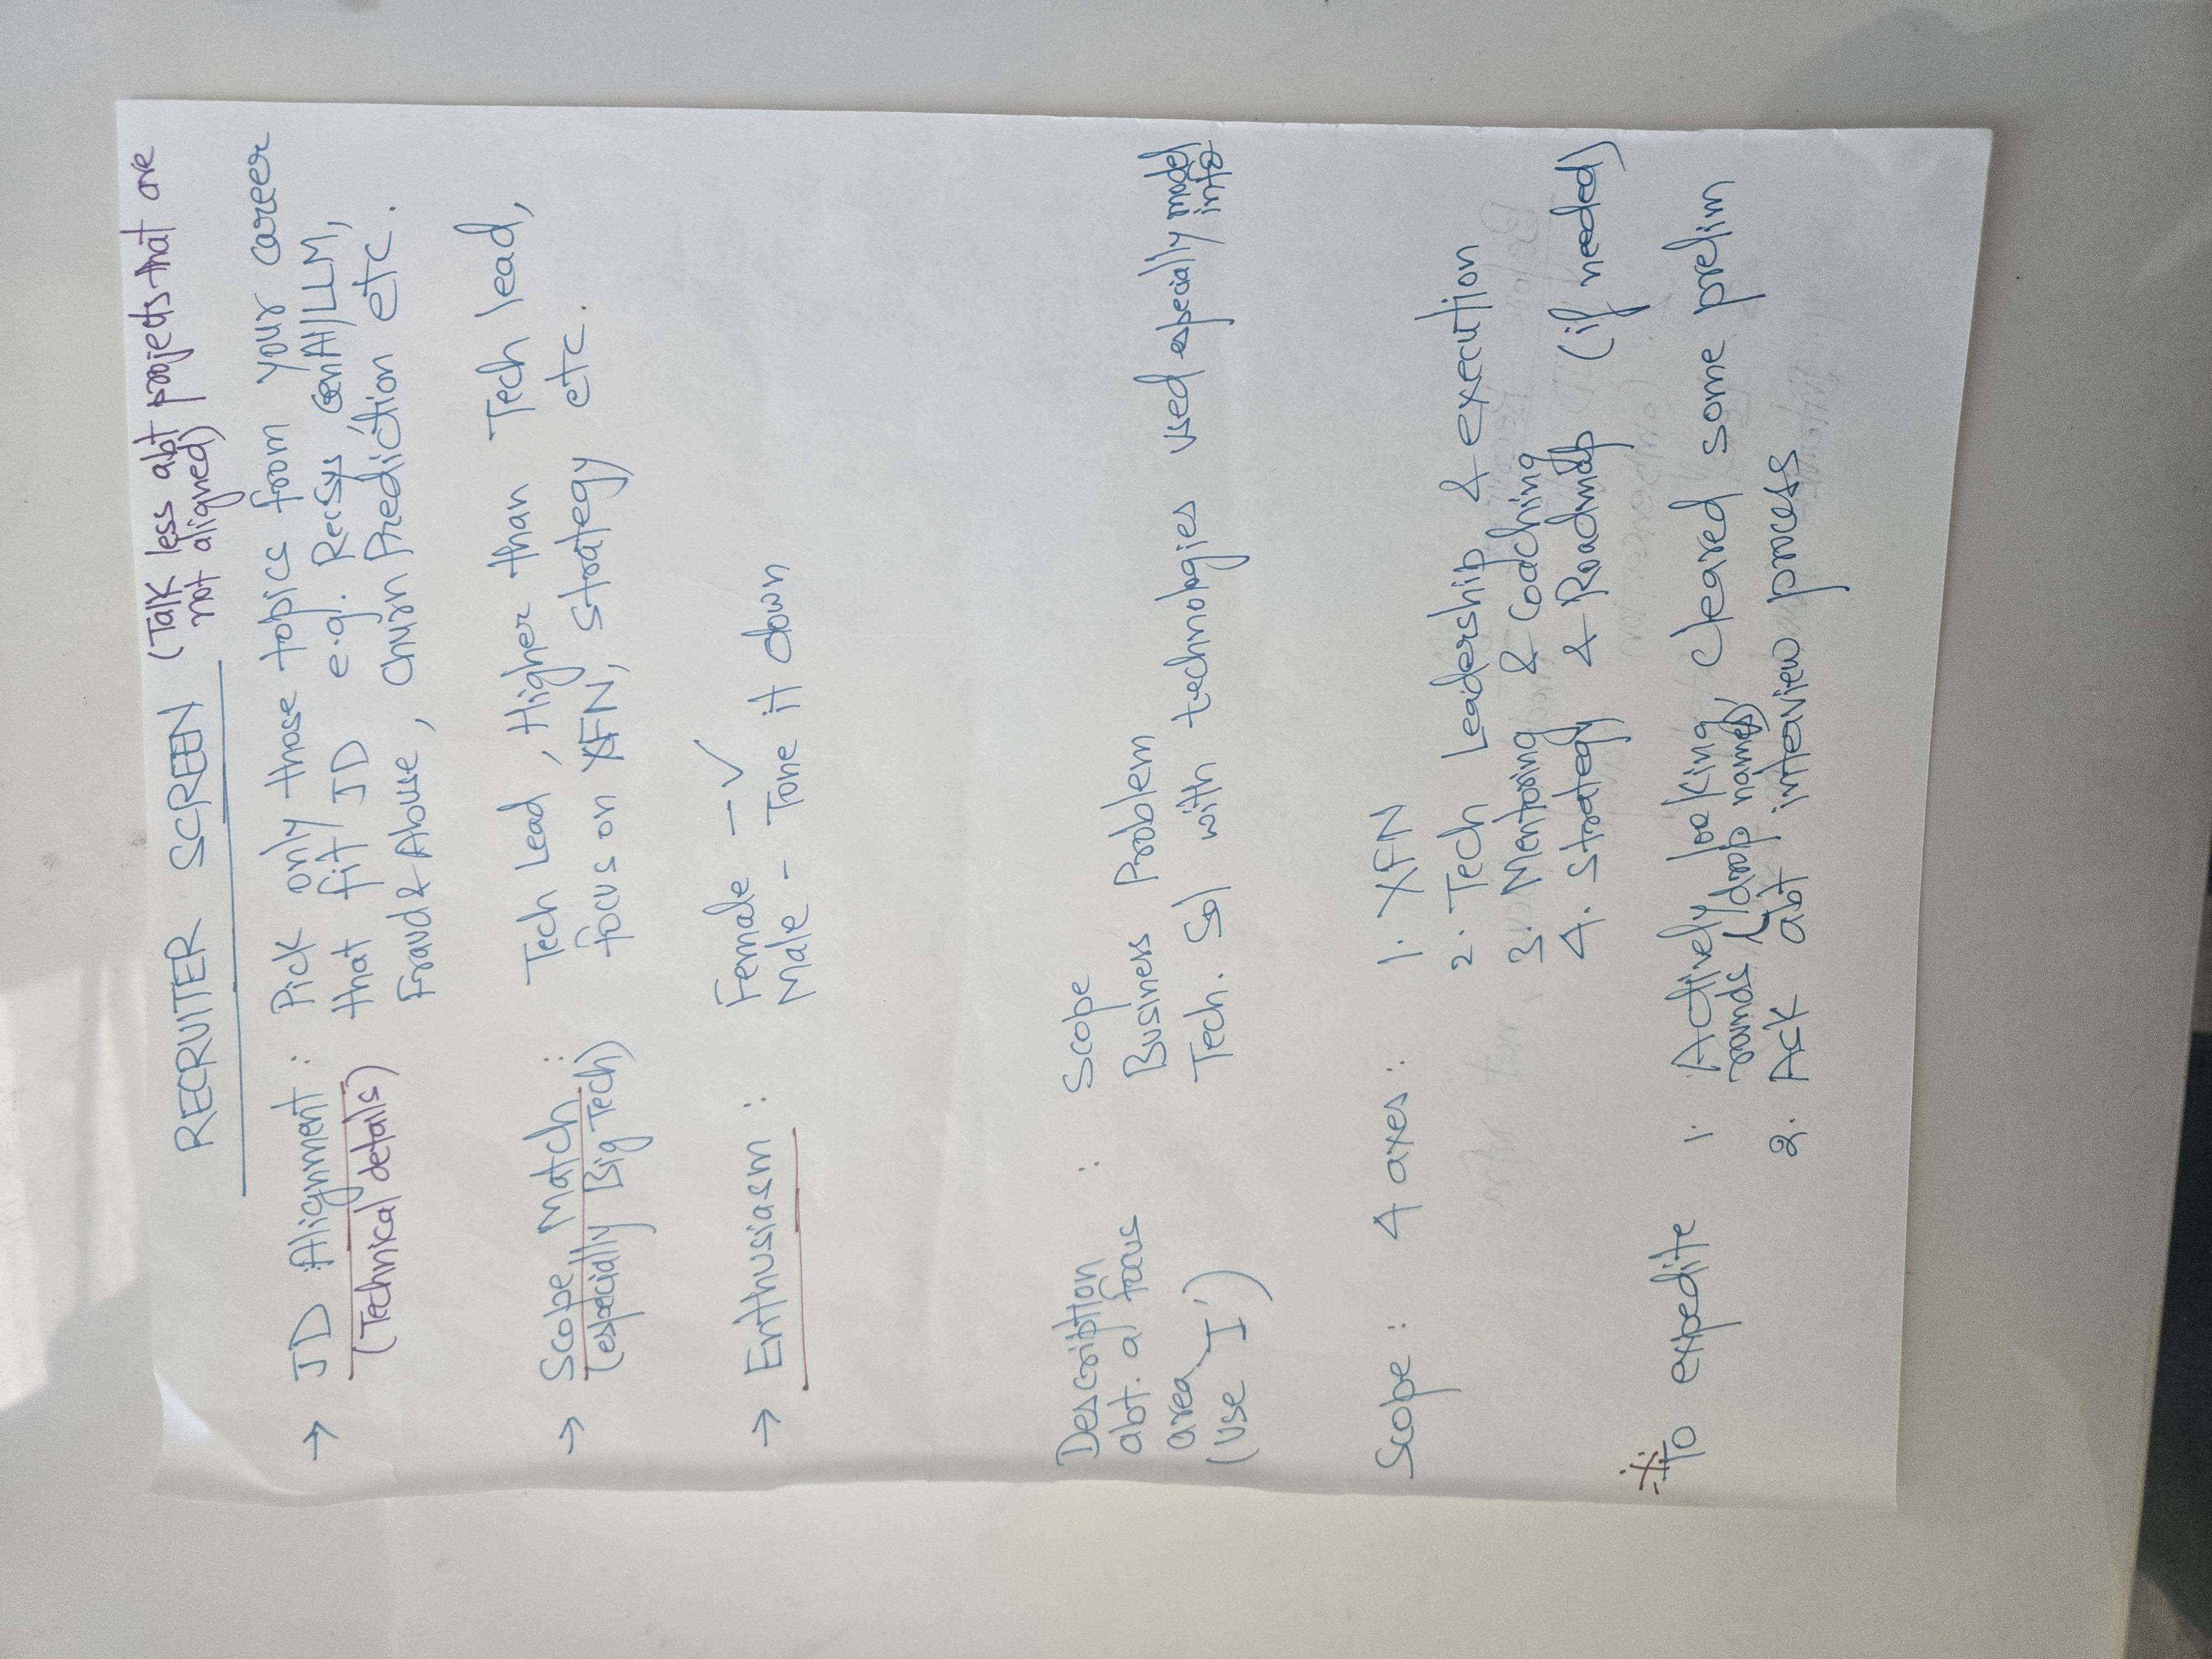 RECRUITER SCREEN (Talk less abt projects that are
not aligned)
→ JD Alignment : Pick only those topics from your career
(Technical details) that fit JD e.g. RecSys, GenAI/LLM,
Fraud & Abuse, Churn Prediction etc.
→ Scope Match : Tech Lead, Higher than Tech lead,
(especially Big Tech) focus on XFN, strategy etc.
→ Enthusiasm : Female - ✓
Male - Tone it down
Description : Scope
abt. a focus Business Problem
area Tech. Sol with technologies used especially model info
(use 'I')
Scope : 4 axes : 1. XFN
2. Tech Leadership & execution
3. Mentoring & Coaching
4. Strategy & Roadmap (if needed)
※
To expedite 1. Actively looking, cleared some prelim
rounds (drop names)
2. Ask abt interview process